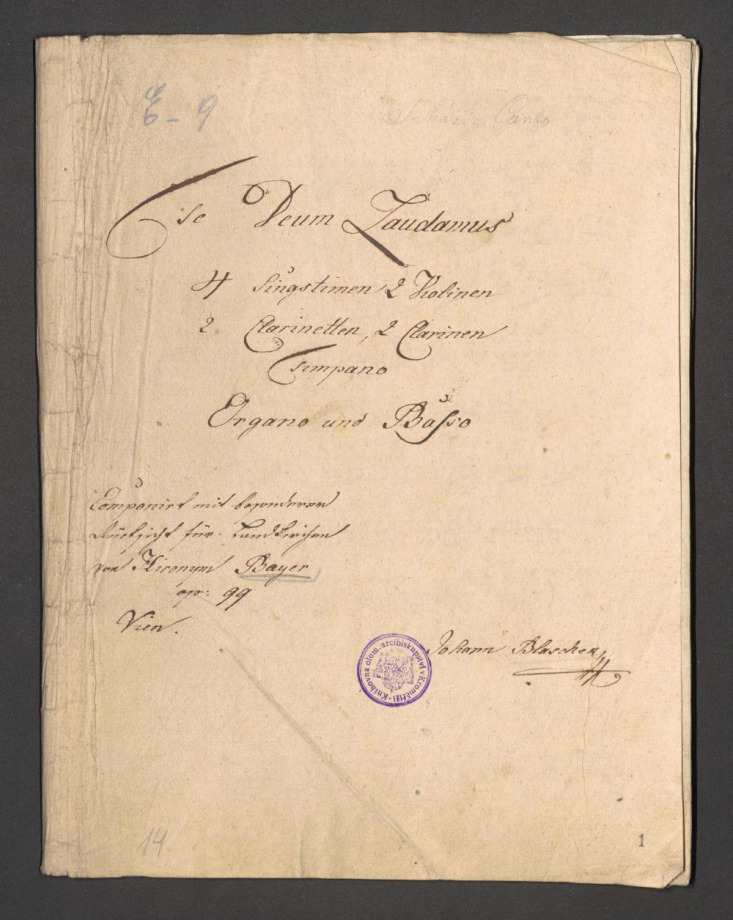 E-9
Te Deum Laudamus
4 Singstimen 2 Violinen
2 Clarinetten, 2 Clarinen
Timpano
Organo und Basso
Componirt mit besonderer
Rücksicht für Landkirchen
von Hieronym Bayer
op: 99
Wien.
Johann Blaschek
Knihovna olom. arcibiskupství v Kroměříži
14
1